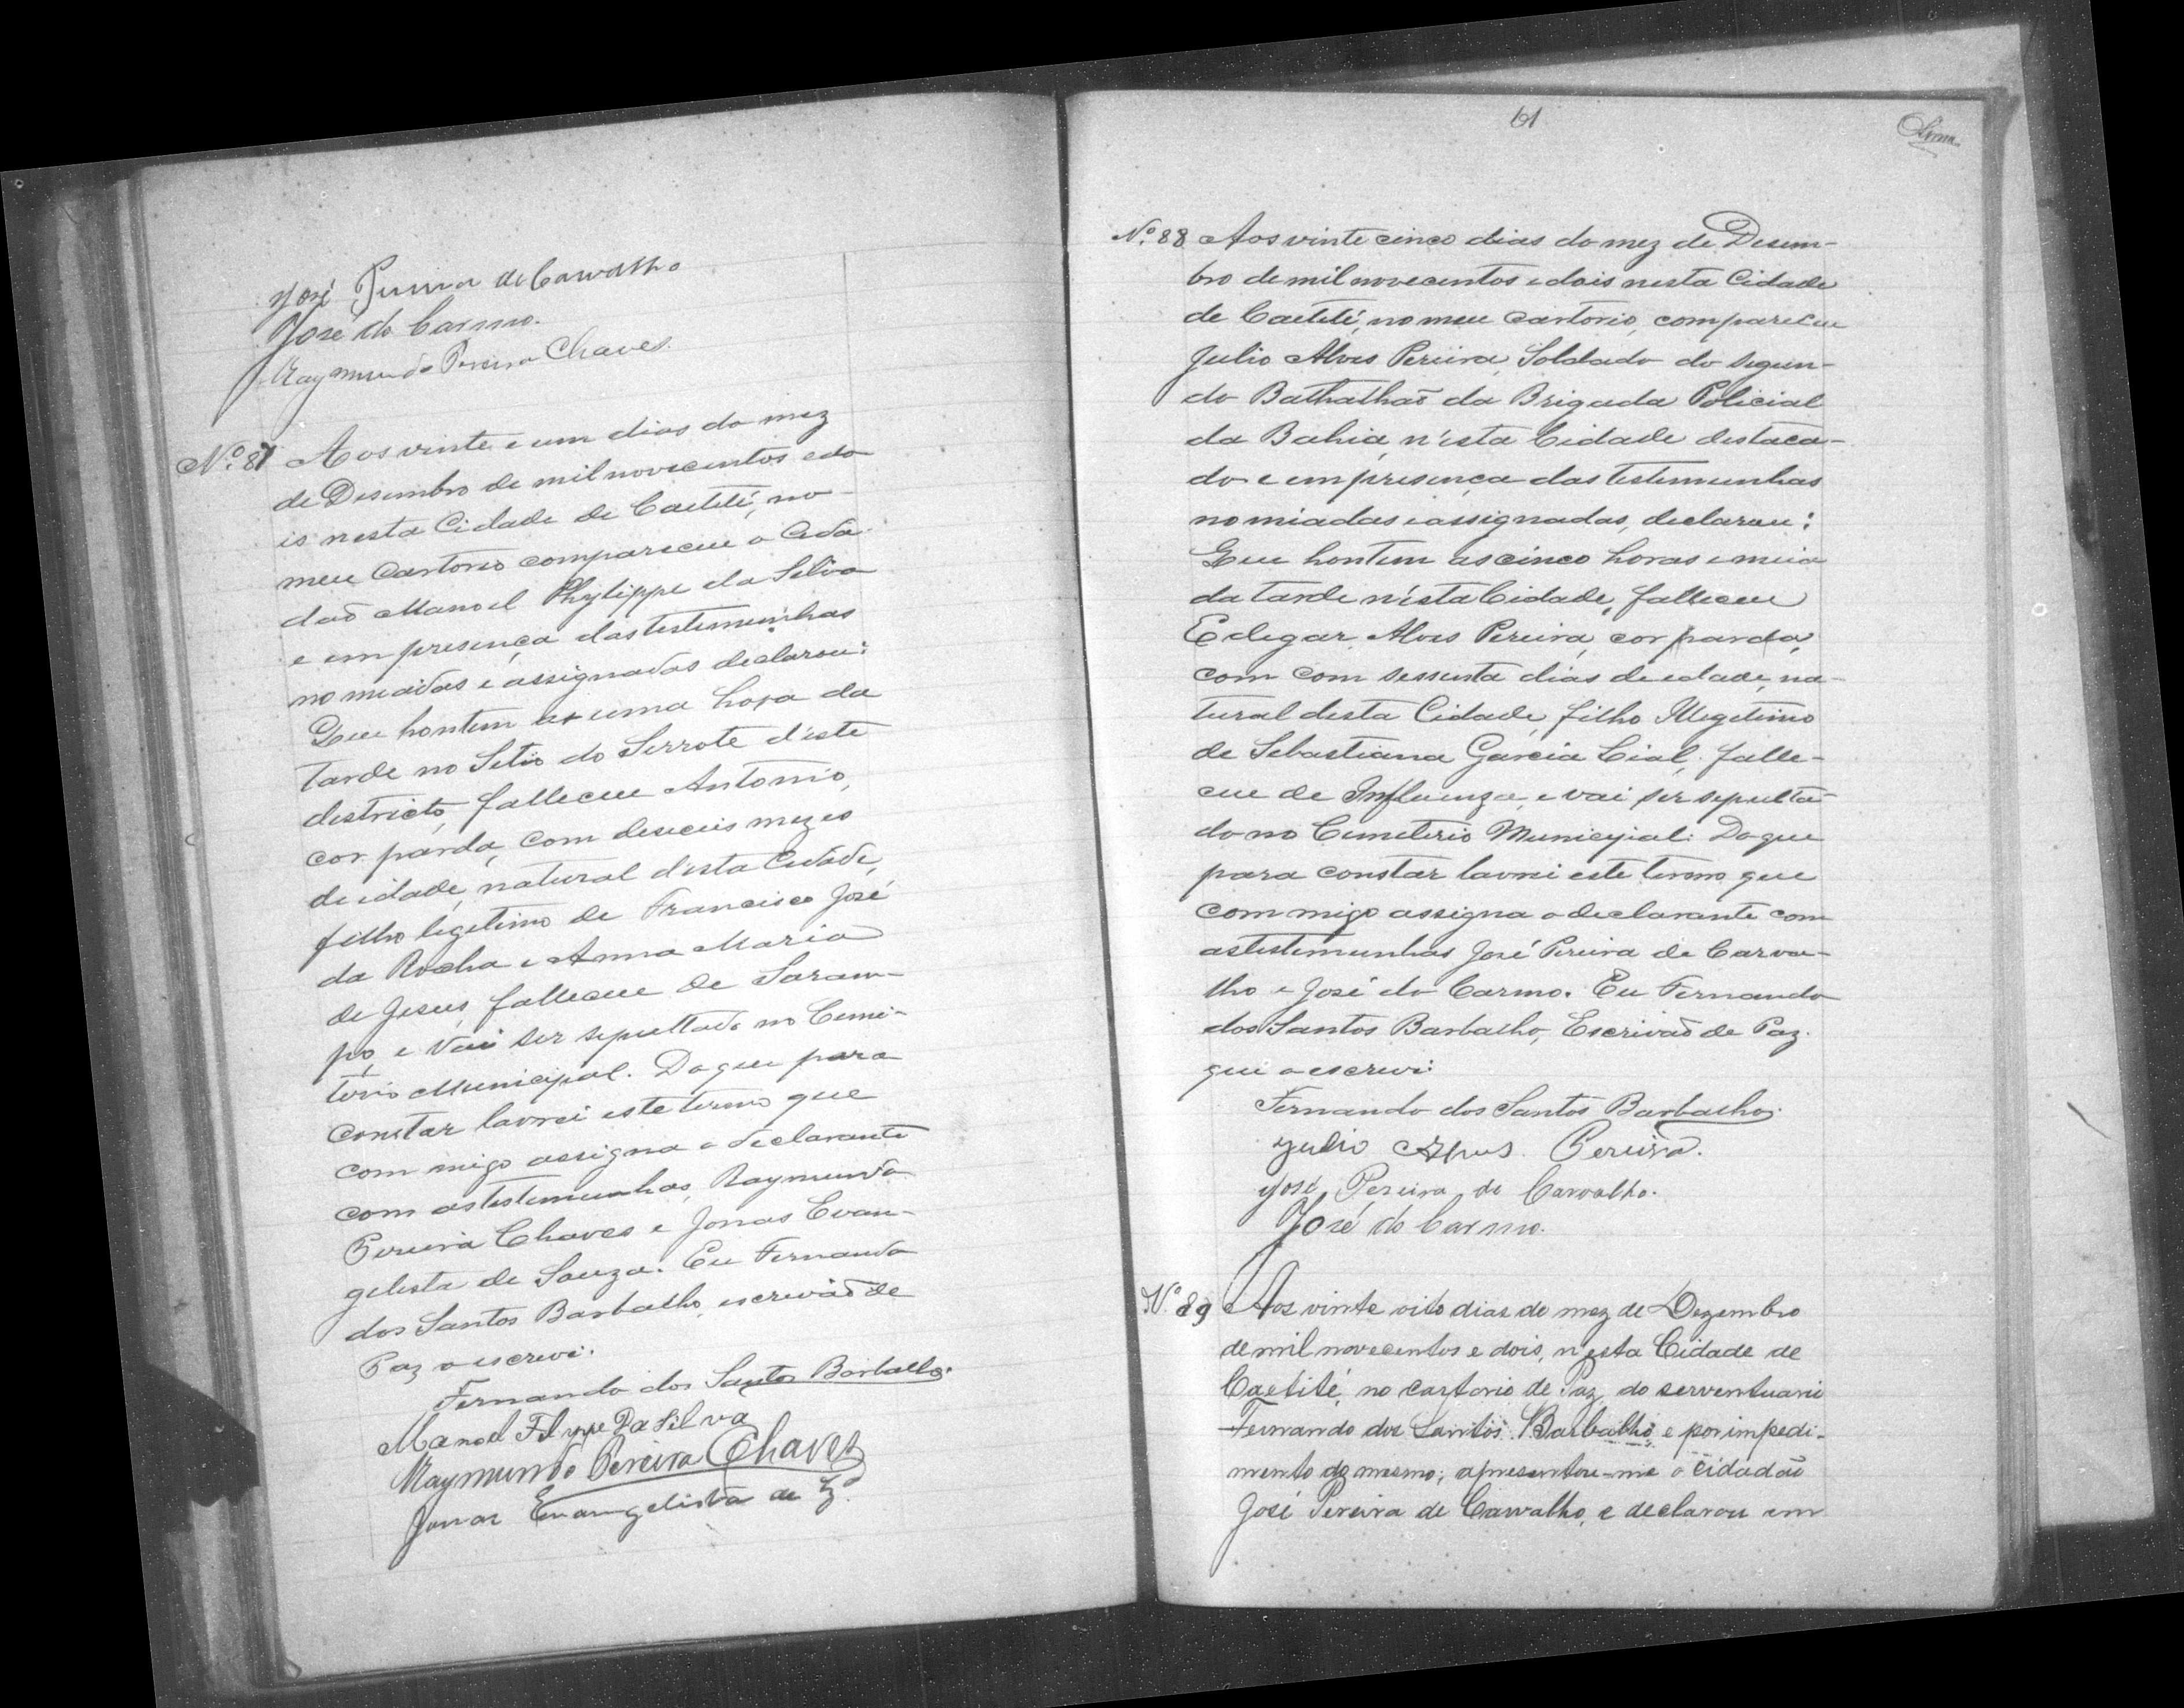 José Pereira de Carvalho
José do Carmo.
Raymundo Pereira Chaves.
Nº 87 Aos vinte e um dias do mez
de Desembro de mil novecentos e do
is nesta Cidade de Caetité, no
meu Cartorio compareceu o Cida
daõ Manoel Phylippe da Silva
e em presença das testemunhas
nomeadas e assignadas declarou:
Que hontem as uma hora da
tarde no Sitio do Serrote d'este
districto, falleceu Antonio,
cor parda, com deseceis mezes
de idade, natural d'esta Cidade,
filho legitimo de Francisco José
da Rocha e Anna Maria
de Jesus, falleceu de Saram-
po, e vai ser sepultado no Cemi-
terio Municipal. Do que para
constar lavrei este termo que
com migo assigna o declarante
com as testemunhas, Raymundo
Pereira Chaves e Jonas Evan-
gelista de Souza. Eu Fernando
dos Santos Barbalho, escrivaõ de
Paz o escrevi.
Fernando dos Santos Barbalho.
Manoel Filyppe Da Silva
Raymundo Pereira Chaves
Jonas Evangelista de Sz.ª
61
Lima
Nº 88 Aos vinte cinco dias do mez de Desem-
bro de mil novecentos e dois nesta Cidade
de Caetité, no meu cartorio, compareceu
Julio Alves Pereira, Soldado do Segun-
do Bathalhaõ da Brigada Policial
da Bahia, n'esta Cidade destaca-
do e em presença das testemunhas
nomiadas e assignadas, declarou:
Que hontem as cinco horas e meia
da tarde n'esta Cidade, falleceu
Edegar Alves Pereira, cor parda,
com com sessenta dias de edade, na-
tural desta Cidade, filho Illegitimo
de Sebastiana Garcia Lial, falle-
ceu de Influenza, e vai ser sepulta-
do no Cemeterio Municipial: Do que
para constar lavrei este termo que
com migo assigna o declarante com
as testemunhas José Pereira de Carva-
lho e José do Carmo. Eu Fernando
dos Santos Barbalho, Escrivaõ de Paz.
que o escrevi:
Fernando dos Santos Barbalho.
Julio Alves Pereira.
José Pereira de Carvalho.
José do Carmo.
Nº 89 Aos vinte oito dias do mez de Dezembro
de mil novecentos e dois, n'esta Cidade de
Caetité, no cartorio de Paz do serventuario
Fernando dos Santos Barbalho e por impedi-
mento do mesmo; apresentou-me o cidadão
José Pereira de Carvalho, e declarou em